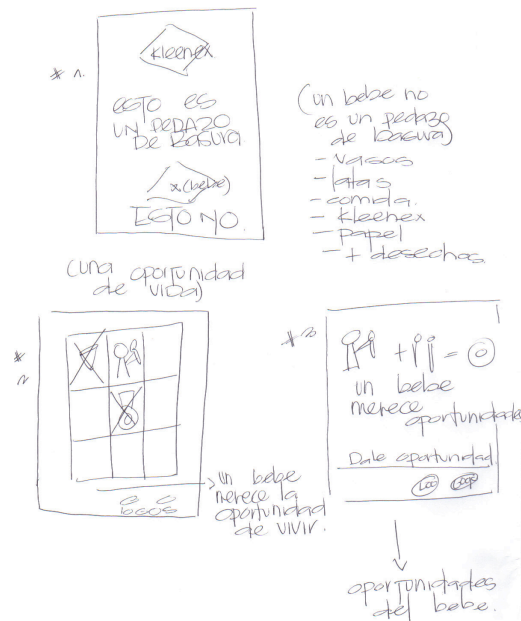 * 1.
Kleenex
ESTO ES
UN PEDAZO
DE BASURA
x (bebe)
ESTO NO.
(un bebe no
es un pedazo
de basura)
- vasos
- latas
- comida.
- Kleenex
- papel
- + desechos
(una oportunidad
de vida)
*
2
un bebe
merece la
oportunidad
de vivir.
* 3
+ =
un bebe
merece
oportunidades
Dale oportunidad.
oportunidades
del bebe.